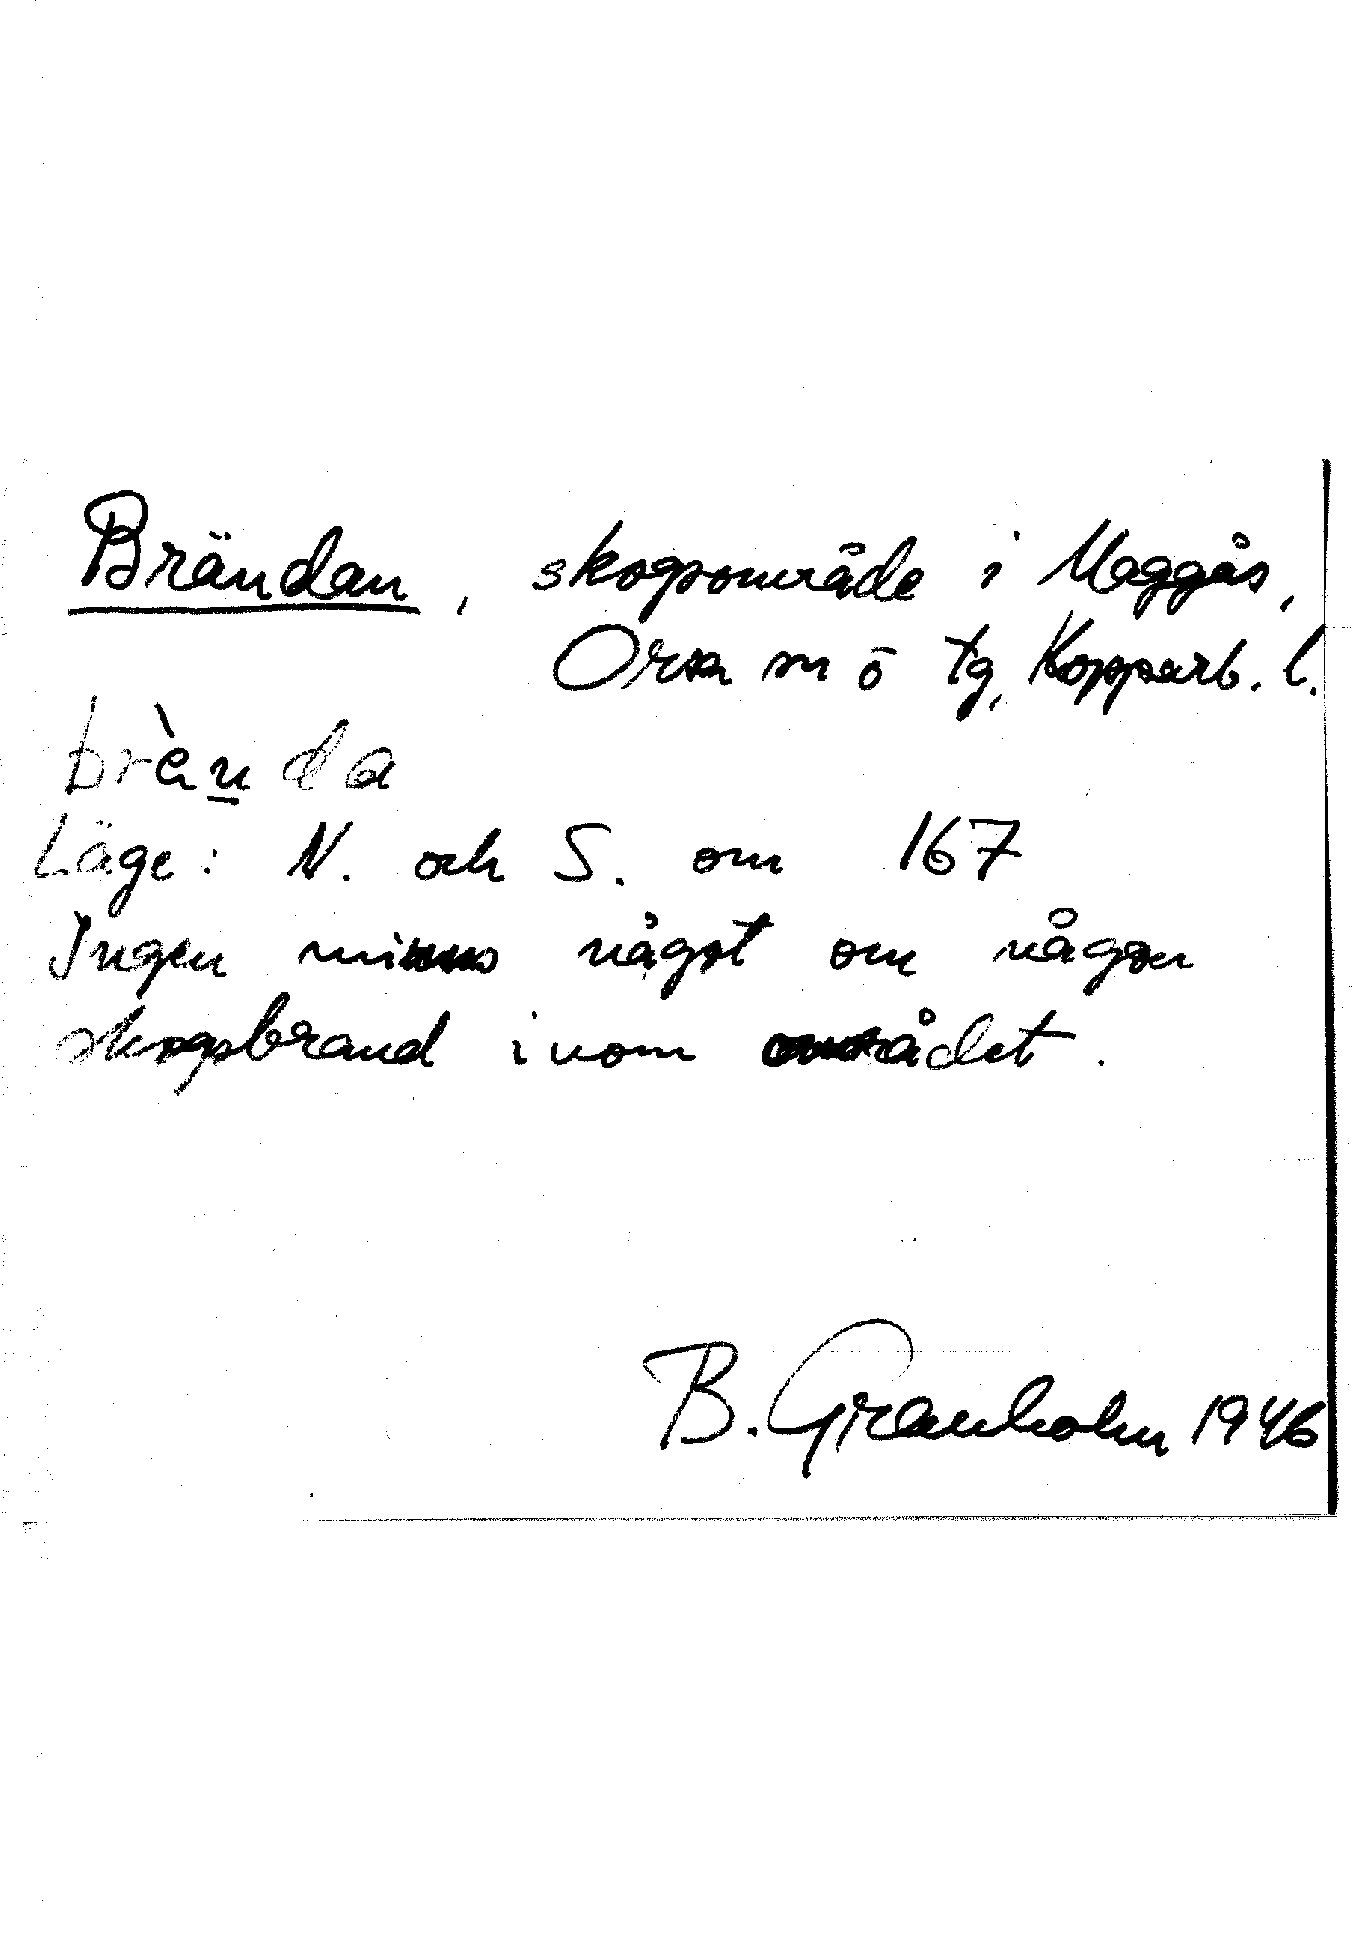 Brändan, skogsområde i Maggås,
Orsa sn ö tg, Kopparb. l.
brὲn̲da
Läge: N. och S. om 167
Ingen minns något om någon
skogsbrand inom området.
B. Granholm 1946